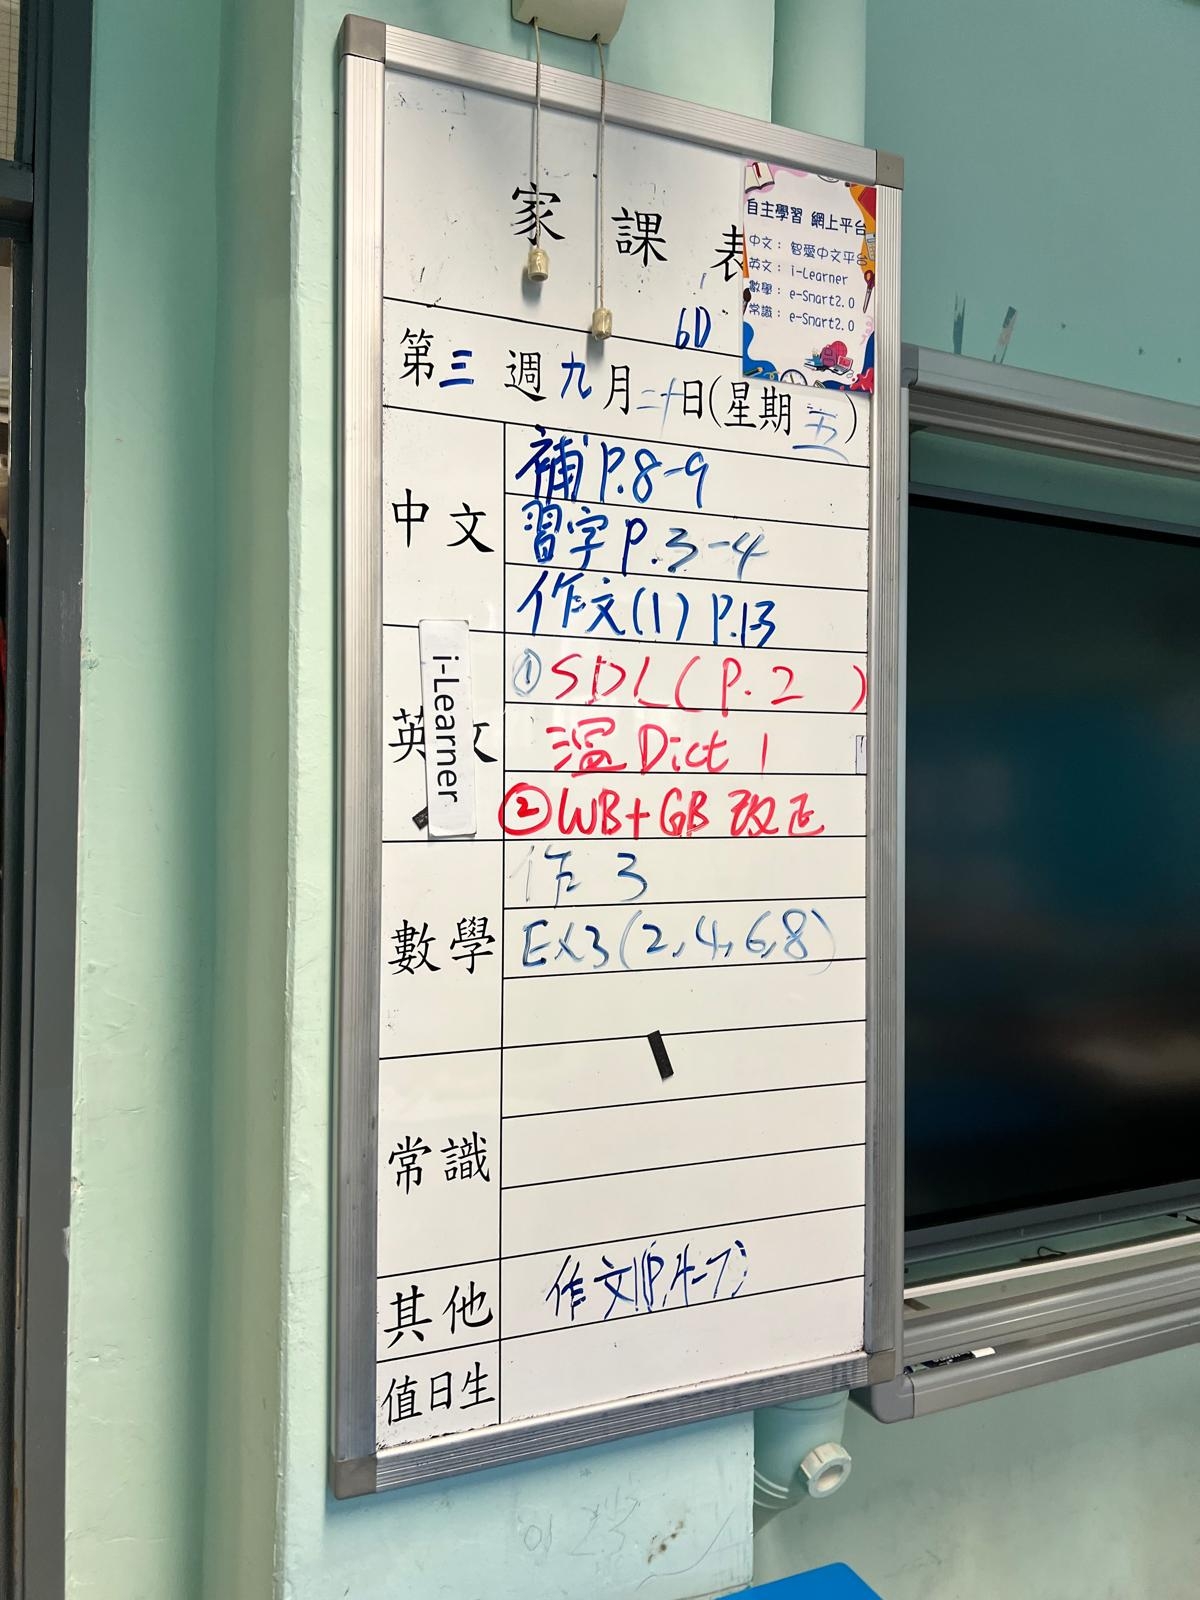 家課表
自主學習 網上平台
中文：智愛中文平台
英文：i-Learner
數學：e-Smart2.0
常識：e-Smart2.0
6D
第三週九月二十日(星期五)
中文
補 P.8-9
習字 P.3-4
作文(1) P.13
英文
i-Learner
①SDL(P.2 )
溫 Dict 1
②WB+GB 改正
數學
作 3
Ex3(2,4,6,8)
常識
其他
作文(P.4-7)
值日生